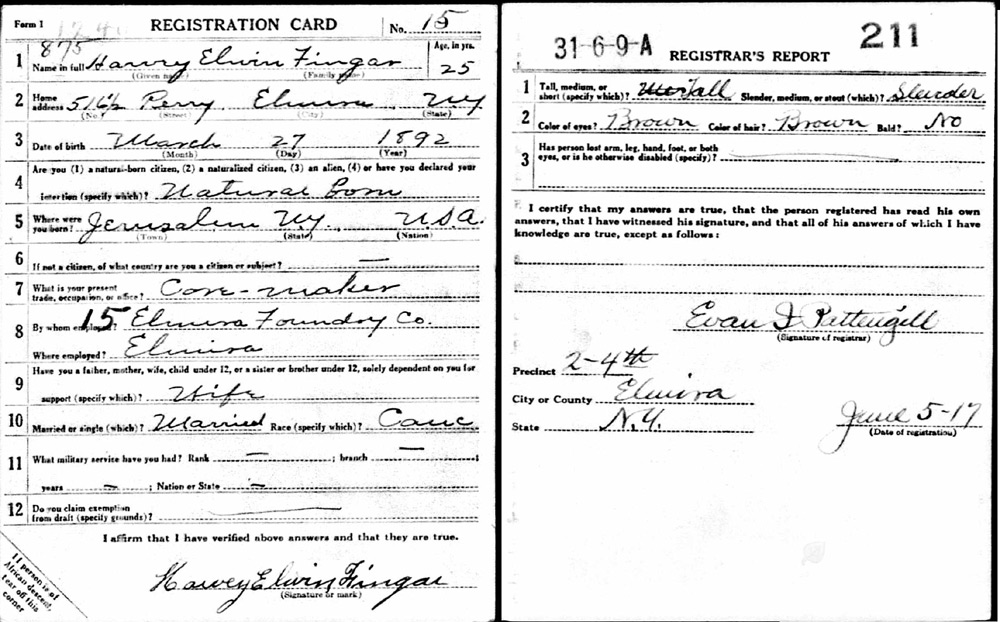 Form 1 REGISTRATION CARD No. 15
875
1 Name in full Harvey Elwin Fingar Age, in yrs. 25
(Given name) (Family name)
2 Home address 516½ Perry Elmira NY
(No.) (Street) (City) (State)
3 Date of birth March 27 1892
(Month) (Day) (Year)
4 Are you (1) a natural-born citizen, (2) a naturalized citizen, (3) an alien, (4) or have you declared your
intention (specify which)? Natural Born
5 Where were you born? Jerusalem NY. U.S.A.
(Town) (State) (Nation)
6 If not a citizen, of what country are you a citizen or subject? —
7 What is your present trade, occupation, or office? Core-maker
8 By whom employed? 15 Elmira Foundry Co.
Where employed? Elmira
9 Have you a father, mother, wife, child under 12, or a sister or brother under 12, solely dependent on you for
support (specify which)? Wife
10 Married or single (which)? Married Race (specify which)? Cauc
11 What military service have you had? Rank — ; branch — ;
years — ; Nation or State —
12 Do you claim exemption from draft (specify grounds)?
I affirm that I have verified above answers and that they are true.
Harvey Elwin Fingar
(Signature or mark)
If person is of
African descent,
tear off this
corner
31-6-9-A REGISTRAR'S REPORT 211
1 Tall, medium, or short (specify which)? Tall Slender, medium, or stout (which)? Slender
2 Color of eyes? Brown Color of hair? Brown Bald? No
3 Has person lost arm, leg, hand, foot, or both eyes, or is he otherwise disabled (specify)?
I certify that my answers are true, that the person registered has read his own
answers, that I have witnessed his signature, and that all of his answers of which I have
knowledge are true, except as follows:
Evan J Pettengill
(Signature of registrar)
Precinct 2-4th
City or County Elmira
State N.Y. June 5-17
(Date of registration)